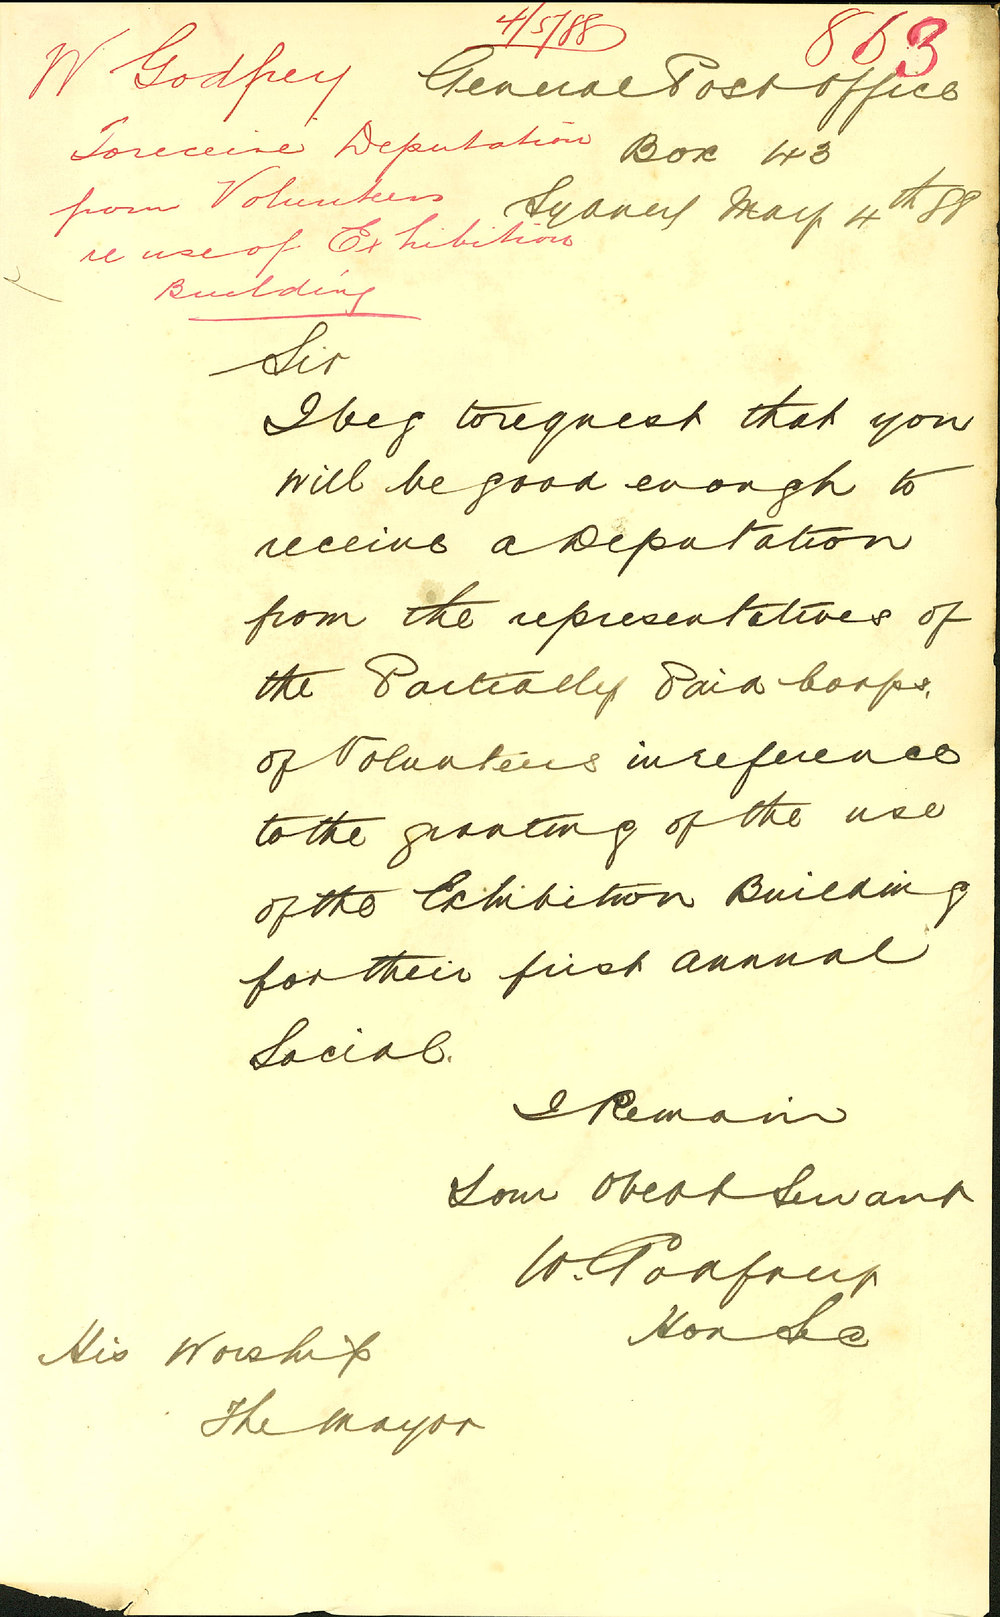 4/5/88
863
W Godfrey
To receive Deputation
from Volunteers
re use of Exhibition
Building
General Post Office
Box 43
Sydney May 4th 88
Sir
I beg to request that you
will be good enough to
receive a Deputation
from the representatives of
the Partially Paid Corps.
of Volunteers in reference
to the granting of the use
of the Exhibition Building
for their first annual
Social.
I Remain
Your Obedt Servant
W. Godfrey
Hon Sec
His Worship
The Mayor